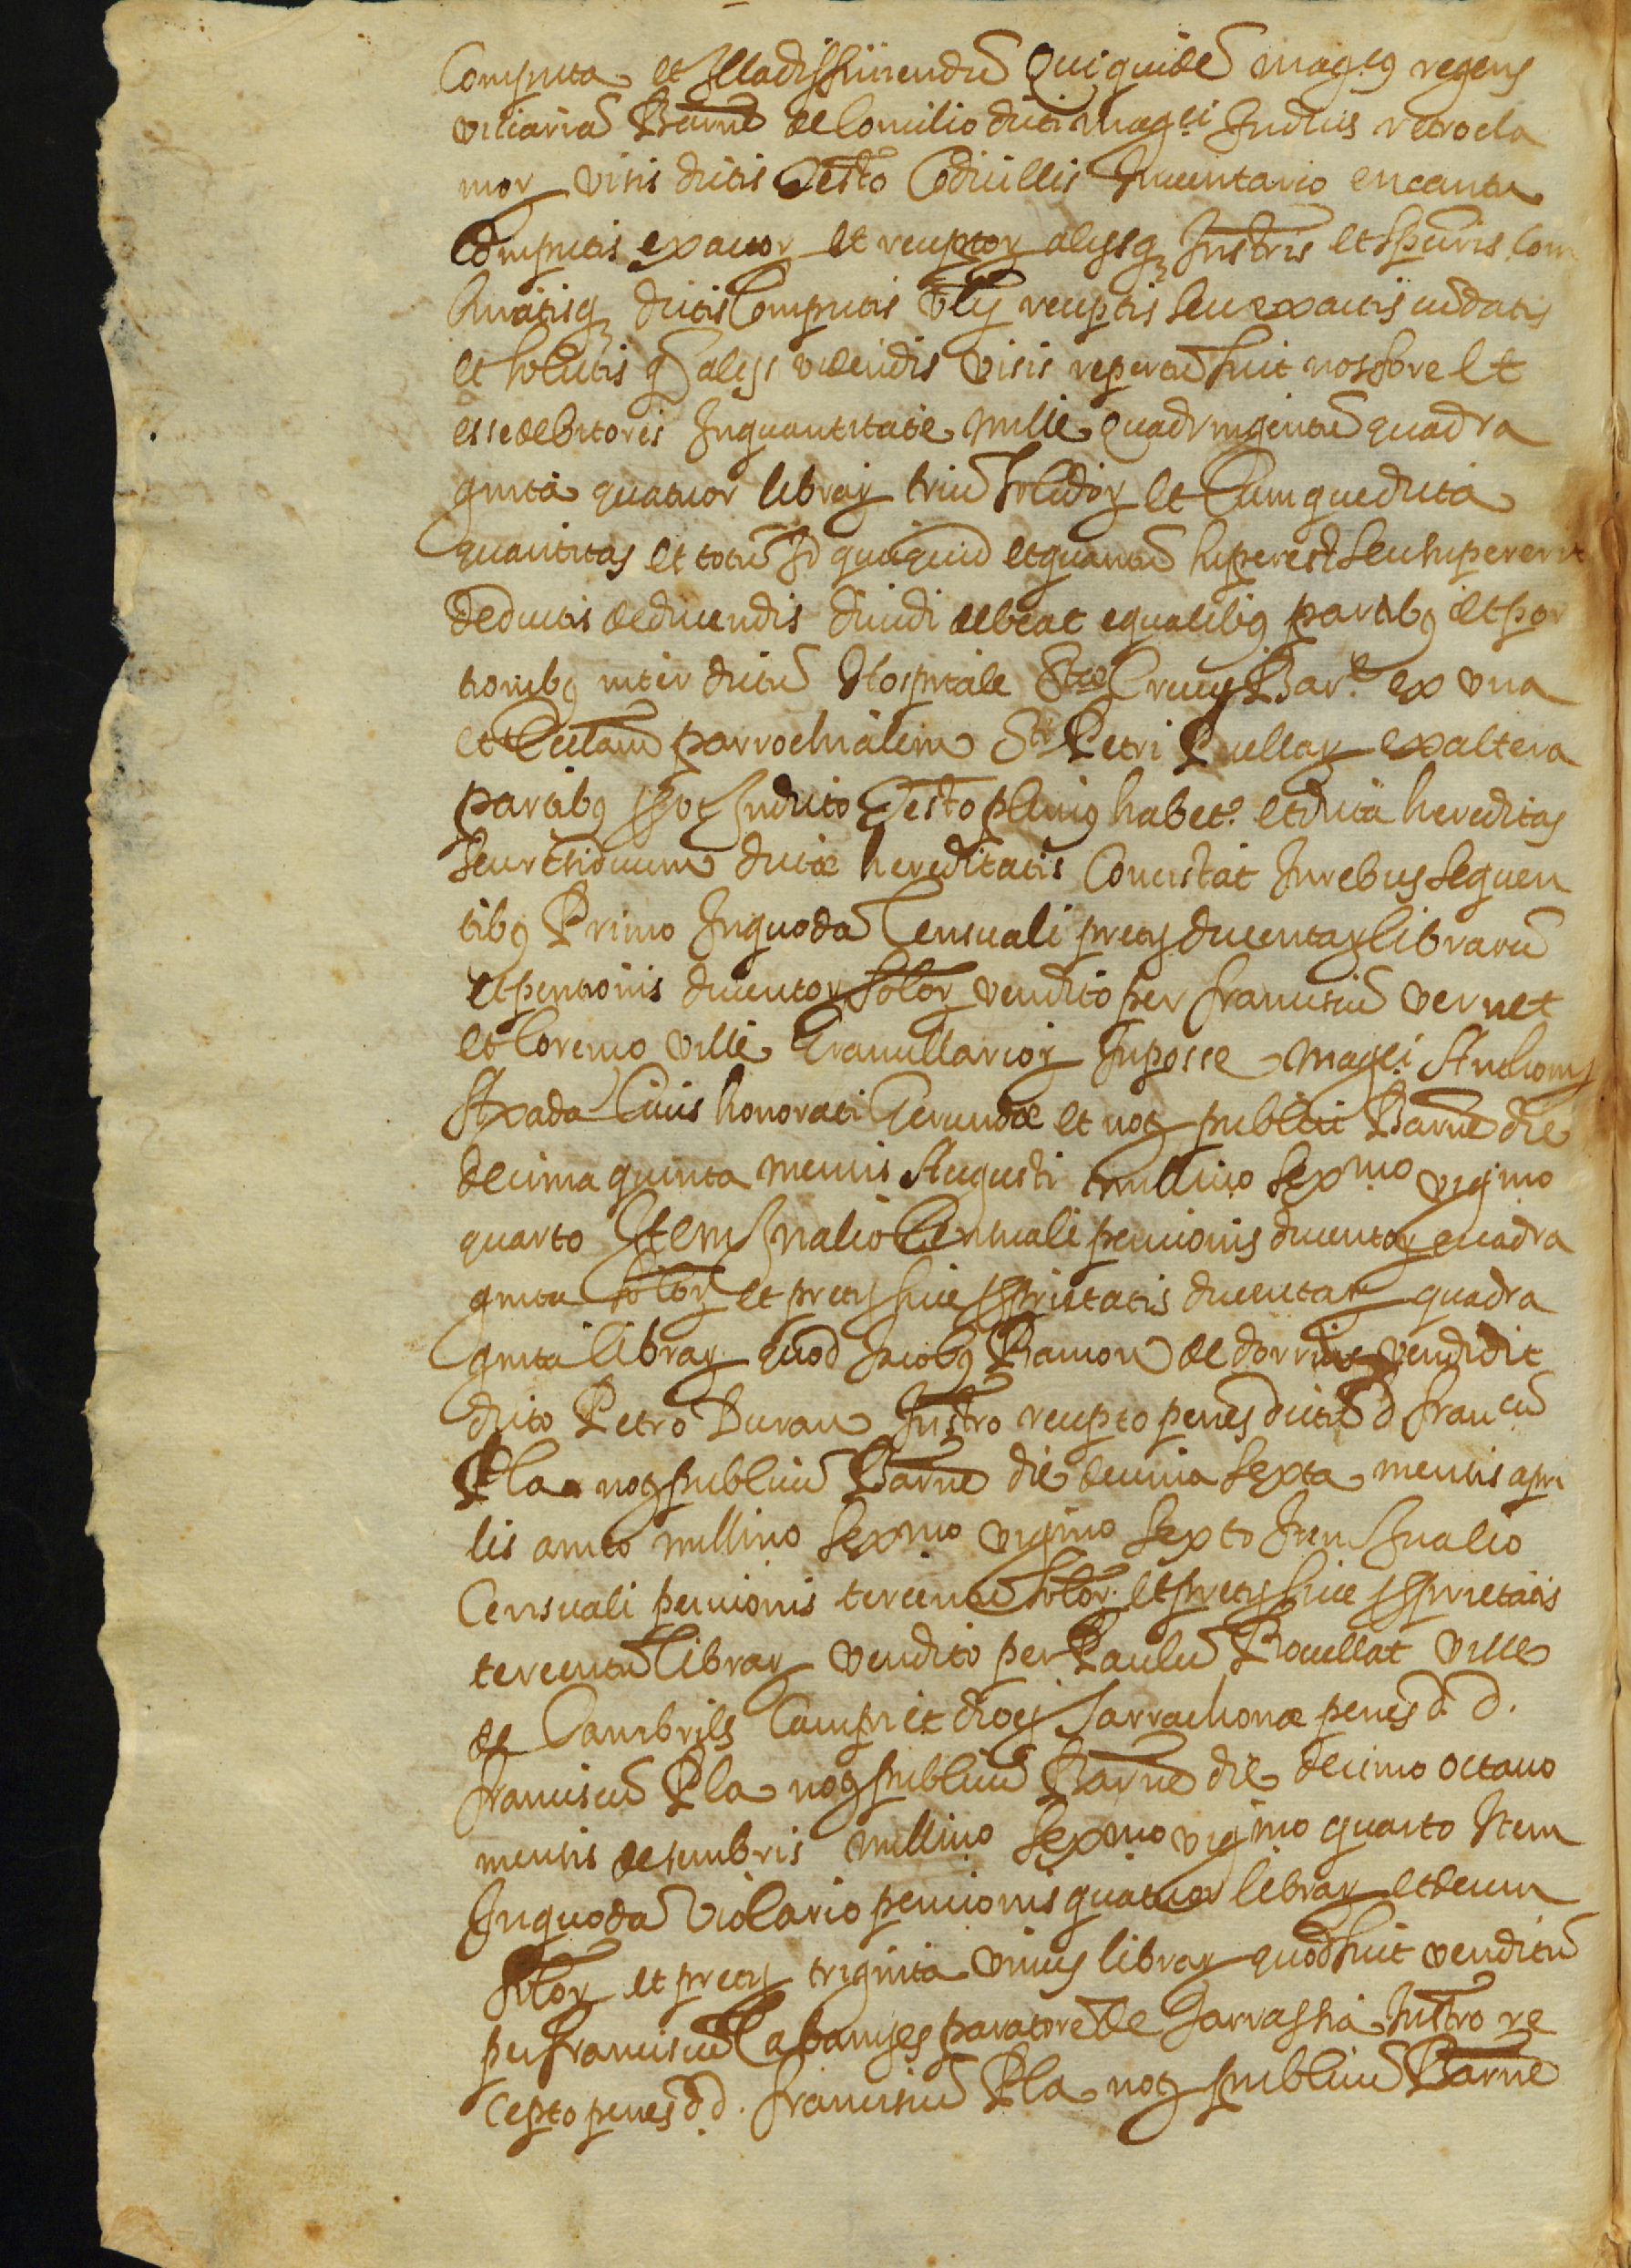 Computa et Illa diffiniendũ Qui quidẽ mag.cus regens
vicariã Barne de Consilio dicti mag.ci Judicis retrocla
mor visis dictis Testo Codicillis Inventario encantu
Computis exactor et receptor alysq Instris et scripturis Com
binatisq dictis Computis vt receptis seu exactis cũ datis
et solutis q alys videndis visis repertũ fuit nos fore Et
esse debitores In quantitate mille quadringentũ quadra
ginta quatuor librar triũ solidor et Cumque dicta
quantitas et totũ Id quicquid et quantũ superest seu supererit
Deductis deducendis dividi debeat equalibus partibus et por
tionibus inter dictũ Hospitale Stæ Crucis Bar.e ex vna
et Ecclam parrochialem Sti Petri Puellar ex altera
partibus prout In dicto Testo plenius habet.r et dicta hereditas
seu residuum dictæ hereditatis Consistat In rebus sequen
tibus Primo In quodã Censuali pretij ducentar librarũ
et pentionis ducentor solor vendito per franciscũ vernet
et loremo ville Granullarior In posse mag.ci Anthony
Axada Civis honorati Gerundæ et not publici Barne die
decima quinta mensis Augusti millmo sexmo vigmo
quarto Item In alio Censuali pensionis ducentor quadra
ginta solor et pretij sive pprietatis ducentar quadra
ginta librar quod Jacobus Ramon de dorrius vendidit
dicto Petro Duran Instro recepto penes dictũ d francũ
Pla not publicũ Barne die decima sexta mensis apri
lis anito millmo sexmo vigmo sexto Item In alio
Censuali pensionis tercentũ solor et pretij sive pprietatis
tercentũ librar vendito per Paulũ Rocellat ville
de Cambrils Campi et diocs Tarrachonæ penes d. d.
franciscũ Pla not publicũ Barne die decimo octavo
mensis desembris millmo sexmo vigmo quarto Item
In quodã violario pensionis quatuor librar et decem
solor et pretij triginta vnius librar quod fuit venditũ
per franciscũ Cabanyes paratorẽ de Tarrassia Instro re
cepto penes d d. franciscũ Pla not publicũ Barne